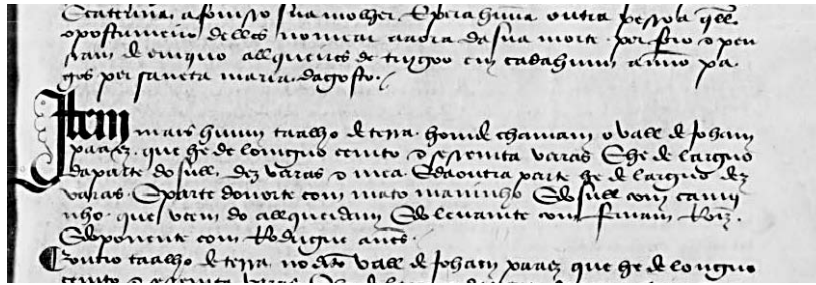 Scaterina afonsso sua molher. E pera hũua outra pessoa q̃
o postumeiro delles nomear ante da sua morte. por foro e pen
ssam de cinquo alqueires de triygoo em cadahuum anno pa
gos per sancta maria dagosto.
Item mais huum taalho de terra. homde chamam o vall de Joham
paaez. que he de lomguo cento e sesemta varas E he de larguo
da parte do sull. dez varas e mea. E da outra parte he de larguo dez
varas. E parte do norte com mato maninho E do sull com cami
nho. que vem do alqueidam E do levamte com fernam Roiz.
E do ponente com Rodrigue anes.
outro taalho de terra. no dito vall de Joham paaez que he de lomguo